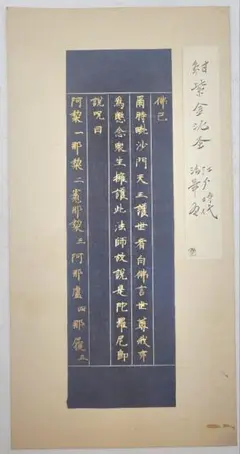 紺紫金泥金
江戸時代
佛已
爾時毗沙門天王護世者白佛言世尊我亦
為愍念眾生擁護此法師故說是陀羅尼即
說呪曰
阿梨一那梨二㝹那梨三阿那盧四那履五